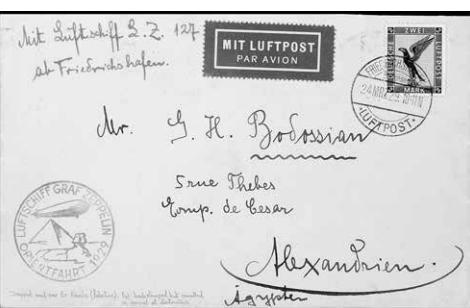 Mit Luftschiff L.Z. 127
ab Friedrichshafen.
MIT LUFTPOST
PAR AVION
DEUTSCHE
ZWEI
LUFTPOST
MARK
LUFTPOST
Mr. G. H. Bodossian
5 rue Thebes
Comp. de Cesar
Alexandrien.
Ägypten
LUFTSCHIFF GRAF ZEPPELIN
ORIENTFAHRT 1929